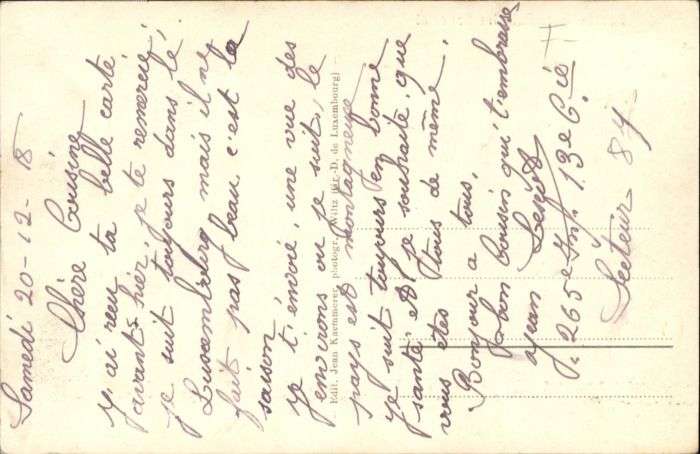 Samedi 20-12-18
Chère Cousine
J'ai reçu ta belle carte
avant-hier, je te remercie,
je suit toujours dans le
Luxembourg mais il ne
fait pas beau c'est la
saison
je t'envoie, une vue des
environs ou je suit, le
pays est montagneux
je suit toujours en bonne
santé et je souhaite, que
vous êtes tous de même,
Bonjour a tous,
Ton cousin qui t'embrasse
Jean
265e Inf. 13e Cie
Secteur 84
Edit. Jean Kaemmerer, photogr., Wiltz (Gr.-D. de Luxembourg)